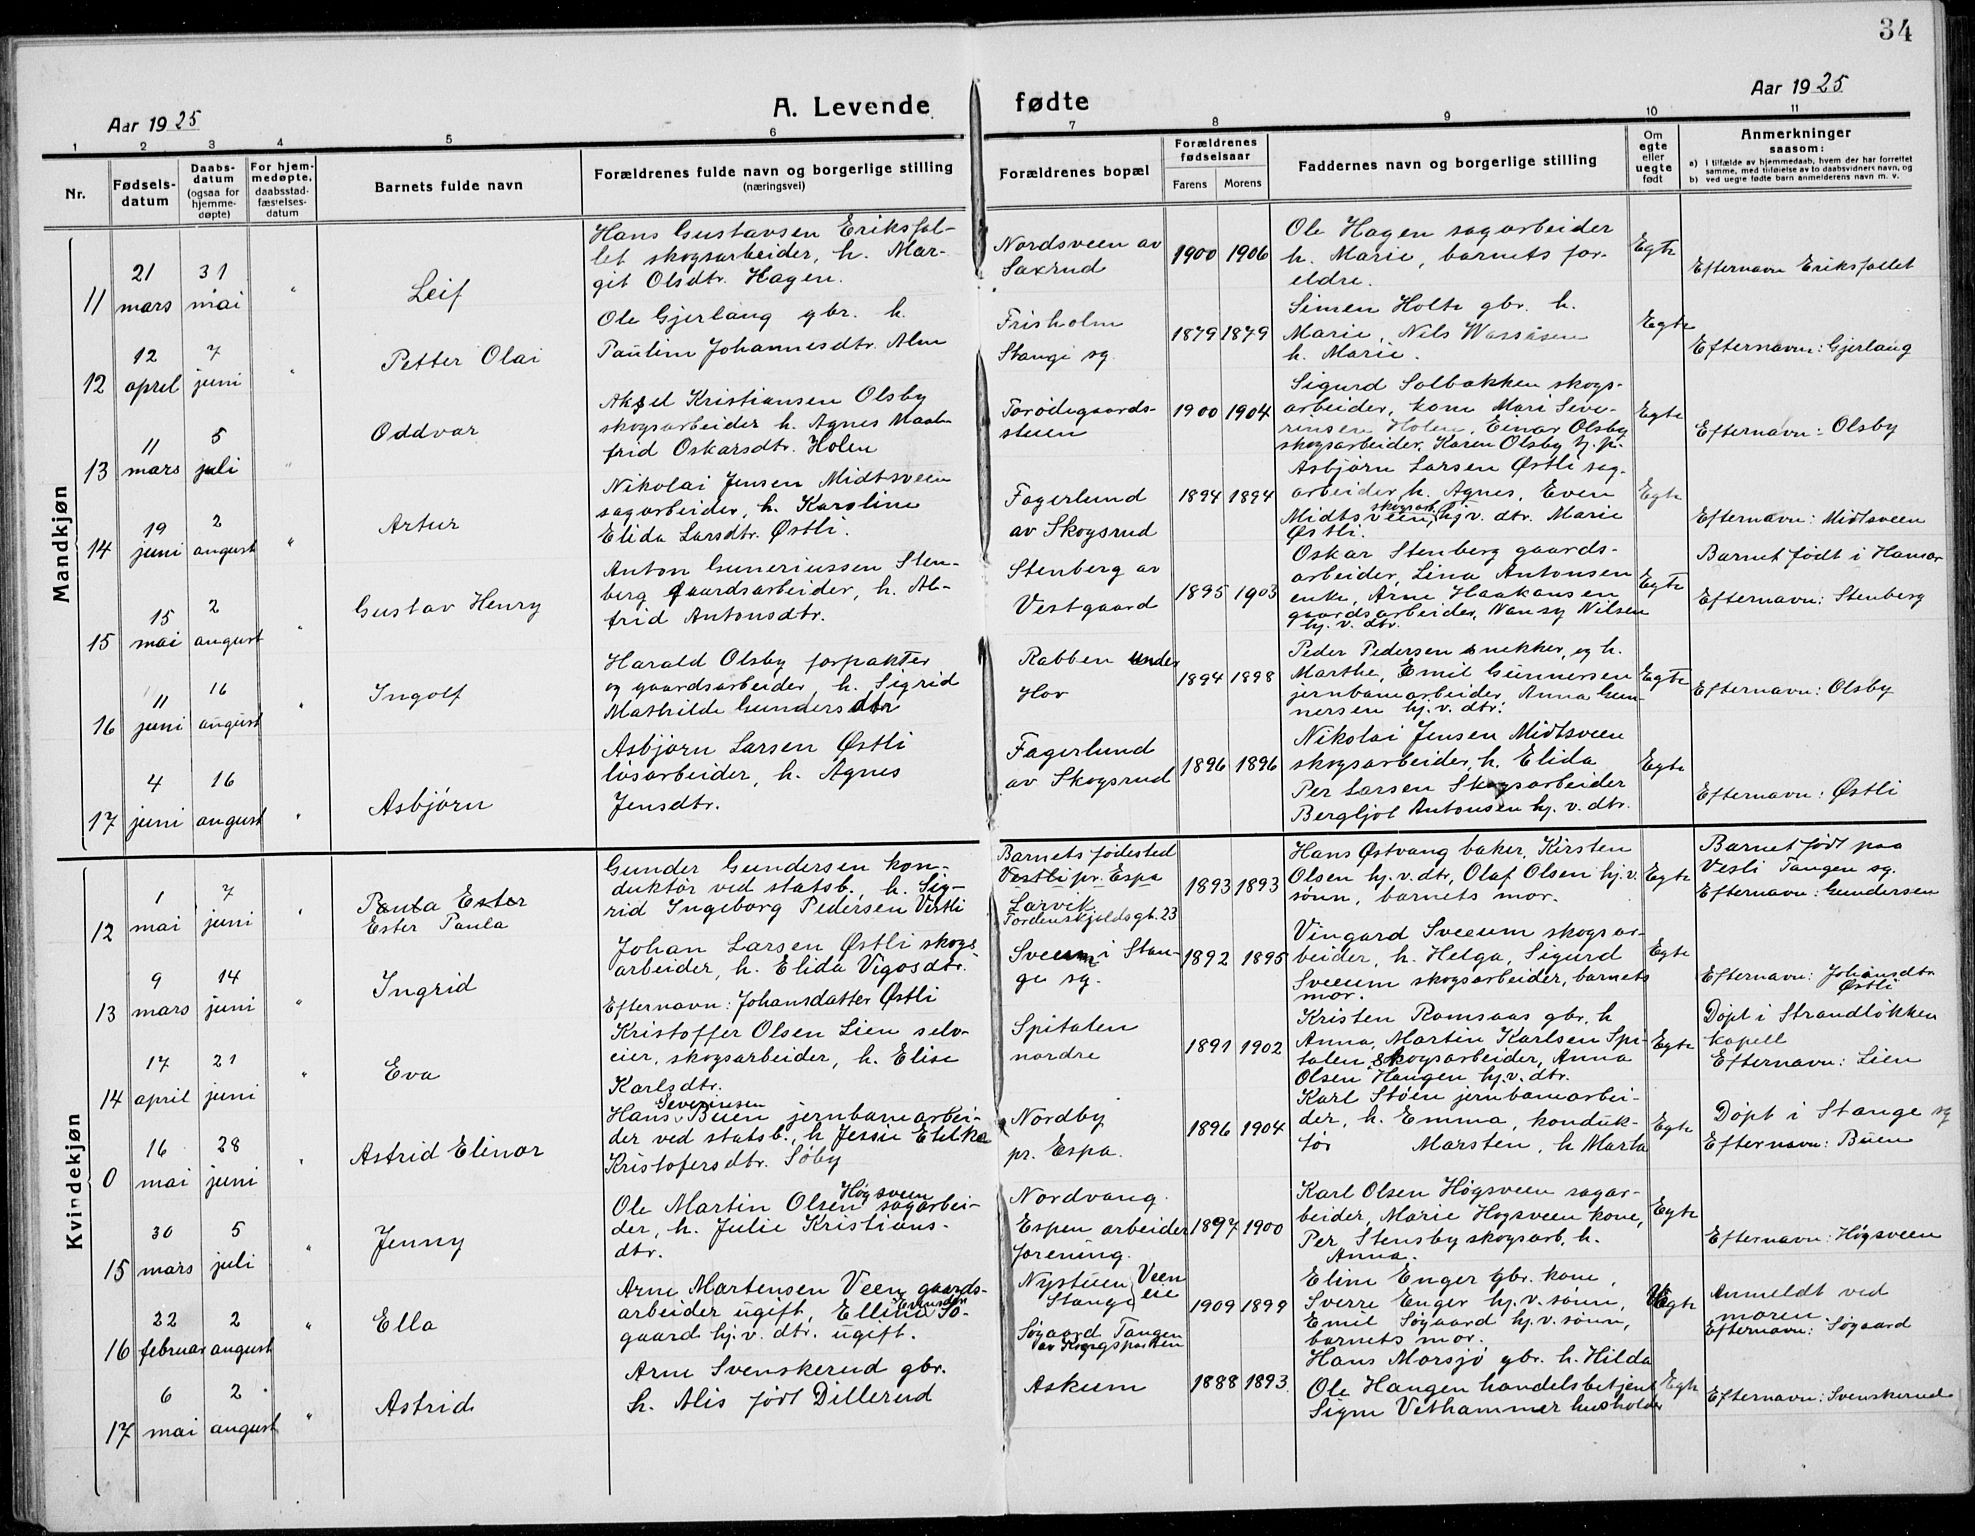 34
Aar 1925
A. Levende fødte
Aar 1925
1 2 3 4 5 6 7 8 9 10 11
Nr.
Fødsels-
datum
Daabs-
datum
(ogsaa for
hjemme-
døpte)
For hjem-
medøpte,
daabsstad-
fæstelses-
datum
Barnets fulde navn
Forældrenes fulde navn og borgerlige stilling
(næringsvei)
Forældrenes bopæl
Forældrenes
fødselsaar
Farens Morens
Faddernes navn og borgerlige stilling
Om
egte
eller
uegte
født
Anmerkninger
saasom:
a) I tilfælde av hjemmedaab, hvem der har forrettet
samme, med tilføielse av to daabsvidners navn, og
b) ved uegte fødte barn anmelderens navn m. v.
Mandkjøn
11
21
mars
31
mai
"
Leif
Hans Gustavsen Eriksfal-
let skogsarbeider, h. Mar-
git Olsdtr. Hagen.
Nordsveen av
Saxrud
1900 1906
Ole Hagen sagarbeider
h. Marie, barnets for-
eldre.
Egte
Efternavn Eriksfallet
12
12
april
7
juni
"
Petter Olai
Ole Gjerlaug gbr. h.
Pauline Johannesdtr. Alm
Frisholm
Stange sg.
1879 1879
Simen Holte gbr. h.
Marie, Nils
h. Marie.
Egte
Efternavn: Gjerlaug
13
11
mars
5
juli
"
Oddvar
Aksel Kristiansen Olsby
skogsarbeider h. Agnes Maal-
frid Oskarsdtr. Holen
Torødegaards-
stuen
1900 1904
Sigurd Solbakken skogs-
arbeider, kone Mari Seve-
rinsen Holen, Einar Olsby
skogsarbeider, Karen Olsby hj. pi.
Egte
Efternavn: Olsby
14
19
juni
2
august
"
Artur
Nikolai Jensen Midtsveen
sagarbeider, h. Karoline
Elida Larsdtr. Østli.
Fagerlund
av Skogsrud
1894 1894
Asbjørn Larsen Østli sag-
arbeider, h. Agnes, Even
skogsarb.
Midtsveen, hj. v. dtr. Marie
Østli.
Egte
Efternavn: Midtsveen
15
15
mai
2
august
"
Gustav Henry
Anton Guneriussen Sten-
berg gaardsarbeider, h. Al-
frid Antonsdtr.
Stenberg av
Vestgaard
1895 1903
Oskar Stenberg gaards-
arbeider, Lina Antonsen
enke, Arne Haakonsen
gaardsarbeider, Nansy Nilsen
hj. v. dtr.
Egte
Barnet født i Hamar
Efternavn: Stenberg
16
11
juni
16
august
"
Ingolf
Harald Olsby forpakter
og gaardsarbeider, h. Sigrid
Mathilde Gundersdtr
Rabben under
Hov
1894 1898
Peder Pedersen snekker, og h.
Marthe, Emil Gunnersen
jernbanearbeider, Anna Gun-
nersen hj. v. dtr.
Egte
Efternavn: Olsby
17
4
juni
16
august
"
Asbjørn
Asbjørn Larsen Østli
løsarbeider, h. Agnes
Jensdtr.
Fagerlund
av Skogsrud
1896 1896
Nikolai Jensen Midtsveen
skogsarbeider, h. Elida
Per Larsen Skogsarbeider
Bergljot Antonsen hj. v. dtr.
Egte
Efternavn: Østli
Kvindekjøn
12
1
mai
7
juni
"
Paula Ester
Ester Paula
Gunder Gundersen kon-
duktør ved statsb. h. Sig-
rid Ingeborg Pedersen Vestli
Barnets fødested
Vestli pr. Espa
Larvik
Tordenskjoldsgt. 23
1893 1893
Hans Østvang baker, Kirsten
Olsen hj. v. dtr, Olaf Olsen hj. v.
sønn, barnets mor.
Egte
Barnet født paa
Vesli Tangen sg.
Efternavn: Gundersen
13
9
mars
14
juni
"
Ingrid
Johan Larsen Østli skogs
arbeider, h. Elida Vigosdtr.
Efternavn: Johansdatter Østli
Sveum i Stan-
ge sg.
1892 1895
Vingard Sveum skogsar-
beider, h. Helga, Sigurd
Sveum skogsarbeider, barnets
mor.
Egte
Efternavn: Johansdtr
Østli
14
17
april
21
juni
"
Eva
Kristoffer Olsen Lien selv-
eier, skogsarbeider, h. Elise
Karlsdtr.
Spitalen
nordre
1891 1902
Kristen Romsaas gbr. h
Anna, Martin Karlsen Spi-
talen skogsarbeider, Anna
Olsen Haugen hj. v. dtr.
Egte
Døpt i Strandløkken
kapell
Efternavn: Lien
0
16
mai
28
juni
"
Astrid Elinor
Severinsen
Hans Buen jernbanearbei-
der ved statsb., h Jessie
Kristofersdtr. Søby
Nordby
pr. Espa.
1896 1904
Karl Støen jernbanearbei-
der, h. Emma, konduk-
tør Marsten, h Marta
Egte
Døpt i Stange sg
Efternavn: Buen
15
30
mars
5
juli
"
Jenny
Høgsveen
Ole Martin Olsen sagarbei-
der, h. Julie Kristians-
dtr.
Nordvang
Espen arbeider
forening.
1897 1900
Karl Olsen Høgsveen sagar-
beider, Marie Høgsveen kone,
Per Stensby skogsarb. h.
Anna.
Egte
Efternavn: Høgsveen
16
22
februar
2
august
"
Ella
Arne Martensen Veen gaards-
arbeider ugift, Elline Sø-
gaard hj. v. dtr. ugift.
Nystuen Veen
Stange eie
Søgaard Tangen
av Kongsparten
1909 1899
Eline Enger gbr. kone,
Sverre Enger hj. v. sønn,
Emil Søgaard hj. v. sønn,
barnets mor.
Uegte
Anmeldt ved
moren
Efternavn: Søgaard
17
6
mai
2
august
"
Astrid
Arne Svenskerud gbr.
h. Alis født Dillerud
Askum
1888 1893
Hans Morsjø gbr. h. Hilda
Ole Haugen handelsbetjent
Signe Vethammer husholder
Egte
Efternavn: Svenskerud